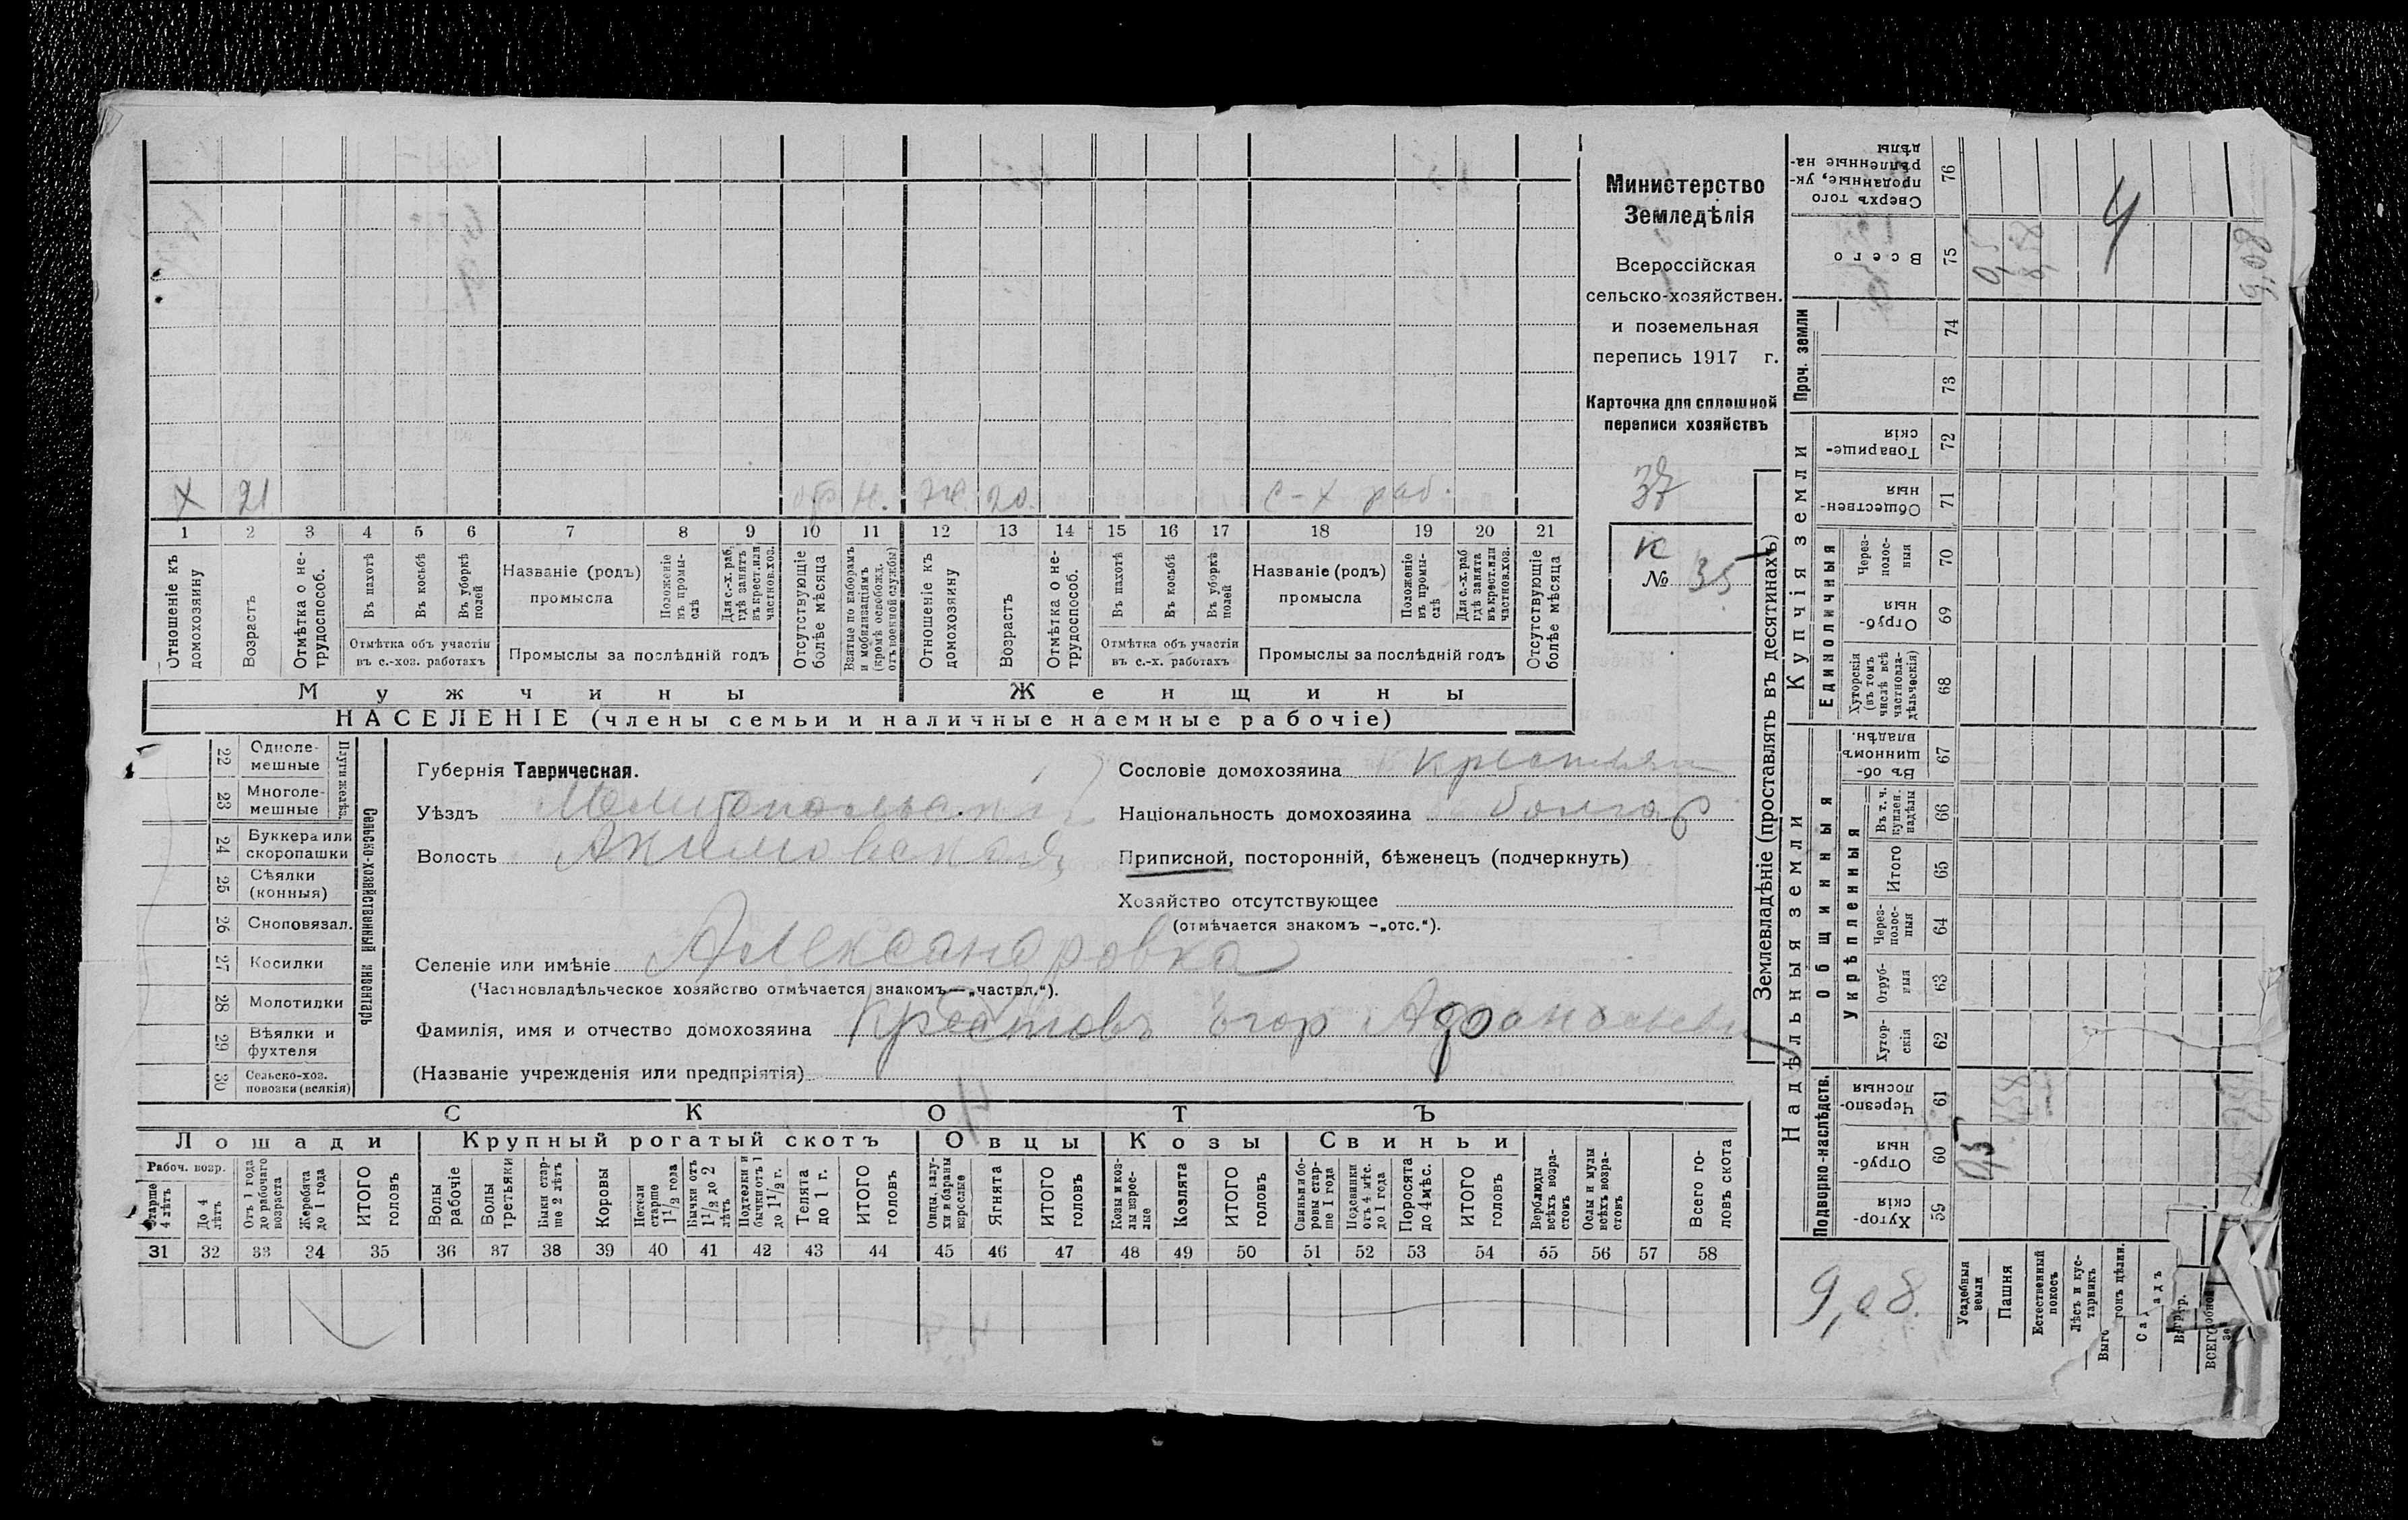 Х 21 Н. Ж. 20. С-Х раб.
1 2 3 4 5 6 7 8 9 10 11 12 13 14 15 16 17 18 19 20 21
Отношеніе къ домохозяину
Возрастъ
Отмѣтка о не-
трудоспособ.
Въ пахотѣ
Въ косьбѣ
Въ уборкѣ
полей
Отмѣтка объ участіи
въ с.-хоз. работахъ
Названіе (родъ)
промысла
Положеніе
въ промы-
слѣ
Для с.-х. раб.
гдѣ занятъ
въ крест. или
частнов. хоз.
Промыслы за послѣдній годъ
Отсутствующіе
болѣе мѣсяца
Взятые по наборамъ
и мобилизаціямъ
(кромѣ освобожд.
отъ военной службы)
Отношеніе къ
домохозяину
Возрастъ
Отмѣтка о не-
трудоспособ.
Въ пахотѣ
Въ косьбѣ
Въ уборкѣ
полей
Отмѣтка объ участіи
въ с.-х. работахъ
Названіе (родъ)
промысла
Положеніе
въ промы-
слѣ
Для с.-х. раб
гдѣ занята
въ крест. или
частнов. хоз.
Промыслы за послѣдній годъ
Отсутствующіе
болѣе мѣсяца
Мужчины Женщины
НАСЕЛЕНІЕ (члены семьи и наличные наемные рабочіе)
Министерство
Земледѣлія
Всероссійская
сельско-хозяйствен.
и поземельная
перепись 1917 г.
Карточка для сплошной
переписи хозяйствъ
37
К
№ 35
Сельско-хозяйственный инвентарь
Плуги желѣз.
22 Одноле-
мешные
23 Многоле-
мешные
24 Буккера или
скоропашки
25 Сѣялки
(конныя)
26 Сноповязал.
27 Косилки
28 Молотилки
29 Вѣялки и
фухтеля
30 Сельско-хоз.
повозки (всякія)
Губернія Таврическая.
Уѣздъ Мелитопольскій
Волость Акимовская
Сословіе домохозяина крестьян
Національность домохозяина болгар
Приписной, посторонній, бѣженецъ (подчеркнуть)
Хозяйство отсутствующее
(отмѣчается знакомъ –„отс.“).
Селеніе или имѣніе Александровка
(Частновладѣльческое хозяйство отмѣчается знакомъ—„частвл.“).
Фамилія, имя и отчество домохозяина Егор
(Названіе учрежденія или предпріятія)
СКОТЪ
Лошади Крупный рогатый скотъ Овцы Козы Свиньи
Рабоч. возр.
Старше
4 лѣтъ
До 4
лѣтъ
Отъ 1 года
до рабочаго
возраста
Жеребята
до 1 года
ИТОГО
головъ
Волы
рабочіе
Волы
третьяки
Быки стар-
ше 2 лѣтъ
Коровы
Нетели
старше
1 1/2 года
Бычки отъ
1 1/2 до 2
лѣтъ
Подтелки и
бычки отъ 1
до 1 1/2 г.
Телята
до 1 г.
ИТОГО
головъ
Овцы, валу-
хи и бараны
взрослые
Ягнята
ИТОГО
головъ
Козы и коз-
лы взрос-
лые
Козлята
ИТОГО
головъ
Свиньи и бо-
ровы стар-
ше 1 года
Подсвинки
отъ 4 мѣс.
до 1 года
Поросята
до 4 мѣс.
ИТОГО
головъ
Верблюды
всѣхъ возра-
стовъ
Ослы и мулы
всѣхъ возра-
стовъ
Всего го-
ловъ скота
31 32 33 34 35 36 37 38 39 40 41 42 43 44 45 46 47 48 49 50 51 52 53 54 55 56 57 58
Землевладѣніе (проставлять въ десятинахъ)
Надѣльныя земли Купчія земли Проч. земли
Подворно-наслѣдств. Общинныя
Укрѣпленныя Единоличныя
Сверхъ того
проданные, ук-
рѣпленные на-
дѣлы 76
Всего 75
74
73
Товарище-
скія 72
Обществен-
ныя 71
Через-
полос-
ныя 70
Отруб-
ныя 69
Хуторскія
(въ томъ
числѣ всѣ
частновла-
дѣльческія) 68
Въ об-
щинномъ
владѣн. 67
Въ т. ч.
куплен.
надѣлы 66
Итого 65
Через-
полос-
ныя 64
Отруб-
ныя 63
Хутор-
скія 62
Черезпо-
лосныя 61
Отруб-
ныя 60
Хутор-
скія 59
Усадебныя
земли
Пашня
Естественный
покосъ
Лѣсъ и кус-
тарникъ
0,5
8,58
4
9,08
0,5
9,08.